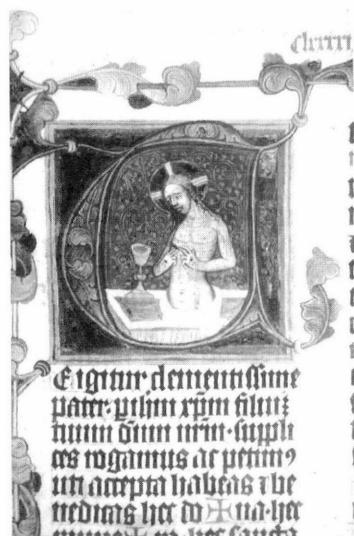 clxxxiii
E igitur clementissime
pater · p ihm xpm filiuz
tuum dnm nrm · suppli
ces rogamus ac petim9
uti accepta habeas ⁊ be
nedicas hec do ✠ na · hec
munera ✠ ra · hec sancta